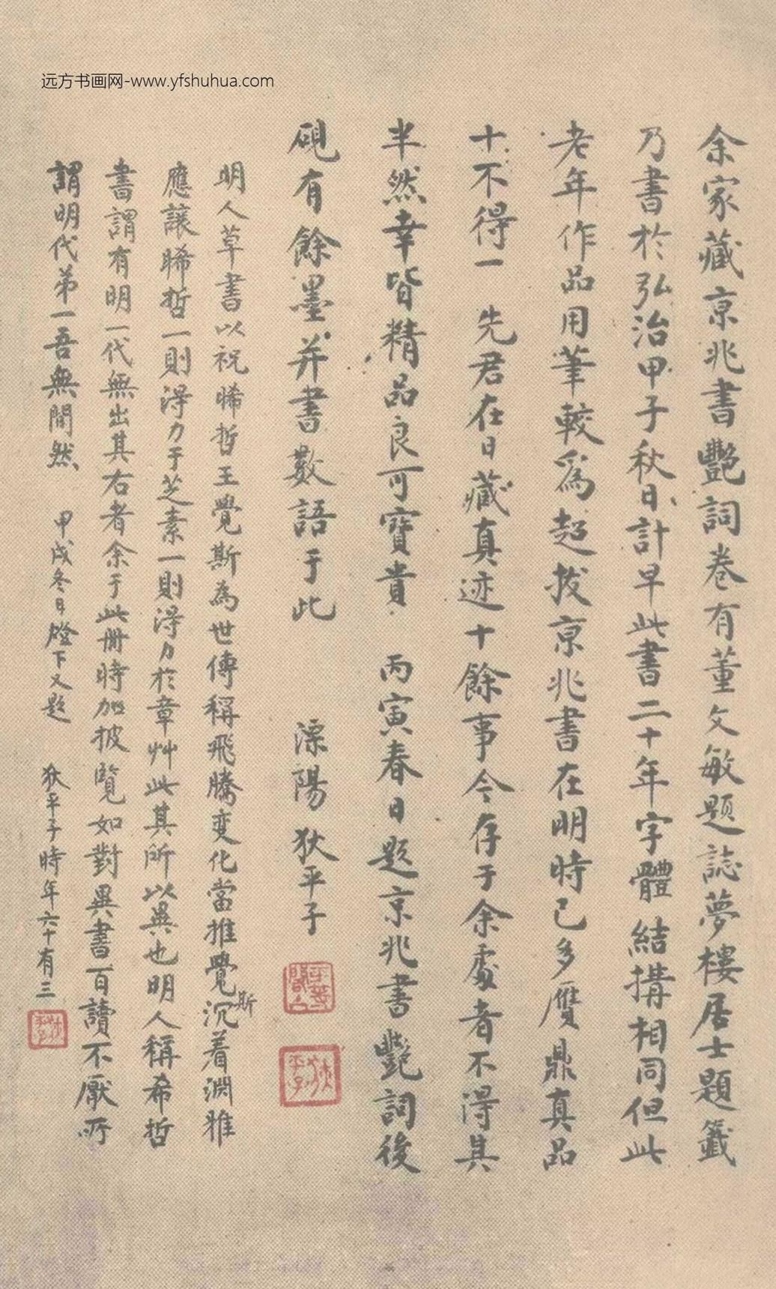 远方书画网-www.yfshuhua.com
余家藏京兆書艷詞卷有董文敏題誌夢樓居士題籤
乃書於弘治甲子秋日計早此書二十年字體結搆相同但此
老年作品用筆較爲超拔京兆書在明時已多贋鼎真品
十不得一 先君在日藏真迹十餘事今存于余處者不得其
半然幸皆精品良可寶貴 丙寅春日題京兆書艷詞後
硯有餘墨并書數語于此 溧陽狄平子
明人草書以祝睎哲王覺斯為世傳稱飛騰变化當推覺斯沉着淵雅
應讓睎哲一則淂力于芝素一則淂力於章艸此其所以異也明人稱希哲
書謂有明一代無出其右者余于此冊時加披覽如對異書百讀不厭所
謂明代第一吾無間然 甲戌冬日燈下又題 狄平子時年六十有三
狄
平子